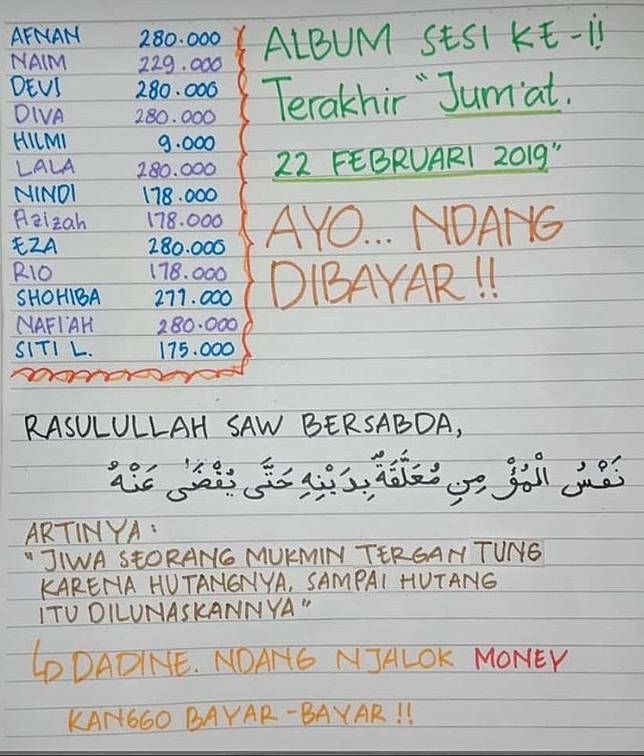 AFNAN 280.000
NAIM 229.000
DEVI 280.000
DIVA 280.000
HILMI 9.000
LALA 280.000
NINDI 178.000
Azizah 178.000
EZA 280.000
RIO 178.000
SHOHIBA 277.000
NAFI'AH 280.000
SITI L. 175.000
ALBUM SESI KE-II
Terakhir "Jum'at,
22 FEBRUARI 2019"
AYO... NDANG
DIBAYAR !!
RASULULLAH SAW BERSABDA,
نَفْسُ الْمُؤْ مِنِ مُعَلَّقَةٌ بِدَيْنِهِ حَتَّى يُقْضَى عَنْهُ
ARTINYA :
"JIWA SEORANG MUKMIN TERGANTUNG
KARENA HUTANGNYA, SAMPAI HUTANG
ITU DILUNASKANNYA"
↳ DADINE. NDANG NJALOK MONEY
KANGGO BAYAR-BAYAR !!